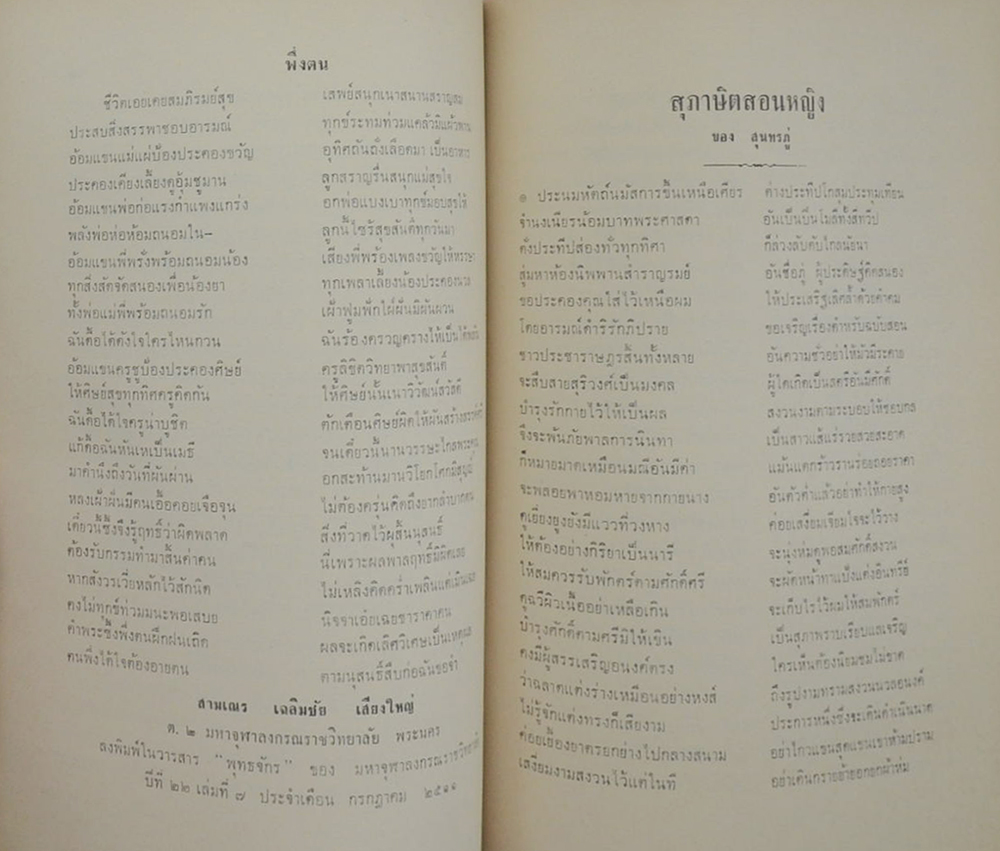 พึ่งตน
ชีวิตเอยเคยสมภิรมย์สุข เสพย์สนุกเนาสนานสราญสม
ประสบสิ่งสรรพาชอบอารมณ์ ทุกข์ระทมท่วมแคล้วมิแผ้วพาน
อ้อมแขนแม่แผ่ป้องประคองขวัญ อุทิศถันถึงเลือดมา เป็นอาหาร
ประคองเคียงเลี้ยงดูอุ้มชูมาน ลูกสราญรื่นสนุกแม่สุขใจ
อ้อมแขนพ่อก่อแรงกำแพงแกร่ง อกพ่อแบ่งเบาทุกข์มอบสุขใช้
พลังพ่อห่อห้อมถนอมใน– ลูกนี้ไซร้สุขสันติ์ทุกวันมา
อ้อมแขนพี่พรั่งพร้อมถนอมน้อง เสียงพี่พร้องเพลงขวัญให้หรรษา
ทุกสิ่งสัตจัดสนองเพื่อน้องยา ทุกเพลาเลี้ยงน้องประคองนวล
ทั้งพ่อแม่พี่พร้อมถนอมรัก เฝ้าฟูมฟักใฝ่ฝันมิผันผวน
ฉันดื้อได้ดังใจใครไหนกวน ฉันร้องครวญครางให้เป็นได้
อ้อมแขนครูชูป้องประคองศิษย์ ครูลิขิตวิทยาพาสุขสันติ์
ให้ศิษย์สุขทุกทิศครูคิดกัน ให้ศิษย์นั้นเนาวิวัฒน์สวัสดิ์
ฉันดื้อได้ใจครูน่าบูชิต ตักเตือนศิษย์ผิดให้ผันสร้างสรรค์ศรี
แก้ดื้อฉันหันเหเป็นเมธี จนเดี๋ยวนี้นานวรรษะไกลพระคุณ
มาคำนึงถึงวันที่ผันผ่าน อกสะท้านมานวิโยคโศกมิสูญ
หลงเฝ้าฝันมีคนเอื้อคอยเจือจุน ไม่ต้องครุ่นคิดถึงยากลำบากตน
เดี๋ยวนี้ซึ้งจึงรู้ฤทธิ์ว่าผิดพลาด สิ่งที่วาดไว้ผุสิ้นนุสนธิ์
ต้องรับกรรมทำมาสิ้นค่าคน นี่เพราะผลพาลฤทธิ์มิผิดเลย
หากสังวรเวี่ยหลักไว้สักนิด ไม่เหลิงคิดคร่ำเพลินแต่เมินเฉย
คงไม่ทุกข์ท่วมมนะพอเสบย นิจจาเอ๋ยเฉยชาราคาคน
คำพระซึ้งพึ่งตนฝึกฝนเถิด ผลจะเกิดเลิศวิเศษเป็นเหตุผล
คนพึ่งได้ใจต้องอายตน ตามนุสนธิ์สืบก่อฉันขอจำ
สามเณร เฉลิมชัย เสียงใหญ่
ต. ๒ มหาจุฬาลงกรณราชวิทยาลัย พระนคร
ลงพิมพ์ในวารสาร "พุทธจักร" ของ มหาจุฬาลงกรณราชวิทยาลัย
ปีที่ ๒๒ เล่มที่ ๗ ประจำเดือน กรกฎาคม ๒๕๑๑
สุภาษิตสอนหญิง
ของ สุนทรภู่
๑ ประนมหัตถ์นมัสการขึ้นเหนือเศียร ต่างประทีปโกสุมประทุมเทียน
จำนงเนียรน้อมบาทพระศาสดา อันเป็นปิ่นโมลีทั้งสี่ทวีป
ดั่งประทีปส่องทั่วทุกทิศา ก็ล่วงลับดับไกลนัยนา
สู่มหาห้องนิพพานสำราญรมย์ อันชื่อภู่ ผู้ประดิษฐ์คิดสนอง
ขอประคองคุณใส่ไว้เหนือผม ให้ประเสริฐเลิศล้ำด้วยคำคม
โดยอารมณ์ดำริรักภิปราย ขอเจริญเรื่องตำหรับฉบับสอน
ชาวประชาราษฎรสิ้นทั้งหลาย อันความชั่วอย่าให้มัวมีระคาย
จะสืบสายสุริวงศ์เป็นมงคล ผู้ใดเกิดเป็นสตรีอันมีศักดิ์
บำรุงรักกายไว้ให้เป็นผล สงวนงามตามระบอบให้ชอบกล
จึงจะพ้นภัยพาลการนินทา เป็นสาวแส้แร่รวยสวยสะอาด
ก็หมายมาดเหมือนมณีอันมีค่า แม้นแตกร้าวรานร่อยถอยราคา
จะพลอยพาหอมหายจากกายนาง อันตัวต่ำแล้วอย่าทำให้กายสูง
ดูเยี่ยงยูงยังมีแววที่วงหาง ค่อยเสงี่ยมเจียมใจจะไว้วาง
ให้ต้องอย่างกิริยาเป็นนารี จะนุ่งห่มดูพอสมศักดิ์สงวน
ให้สมควรรับพักตร์ตามศักดิ์ศรี จะผัดหน้าทาแป้งแต่งอินทรีย์
ดูฉวีผิวเนื้ออย่าเหลือเกิน จะเก็บไรไว้ผมให้สมพักตร์
บำรุงศักดิ์ตามศรีมิให้เขิน เป็นสุภาพราบเรียบแลเจริญ
คงมีผู้สรรเสริญอนงค์ตรง ใครเห็นต้องนิยมชมไม่ขาด
ว่าฉลาดแต่งร่างเหมือนอย่างหงส์ ถึงรูปงามทรามสงวนนวลอนงค์
ไม่รู้จักแต่งทรงก็เสียงาม ประการหนึ่งซึ่งจะเดินดำเนินนาด
ค่อยเยื้องยาตรยกย่างไปกลางสนาม อย่าไกวแขนสุดแขนเขาห้ามปราม
เสงี่ยมงามสงวนไว้แต่ในที อย่าเดินกรายย้ายอกยกผ้าห่ม